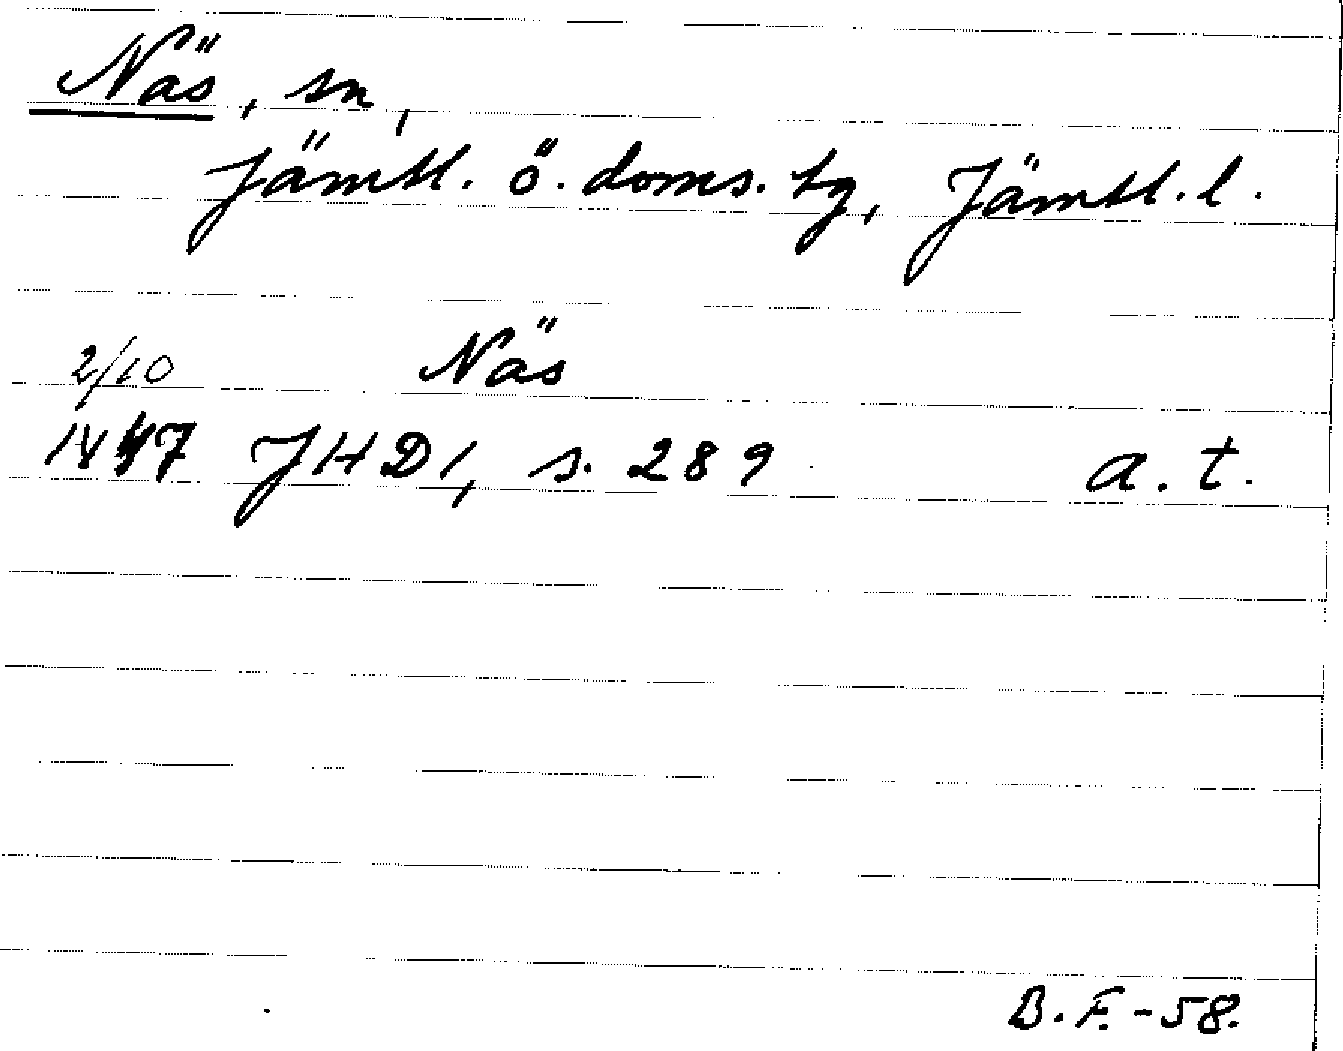 Näs, sn,
Jämtl. ö. doms. tg, Jämtl. l.
2/10 Näs
1447 JHD1, s. 289 a. t.
B. F. - 58.